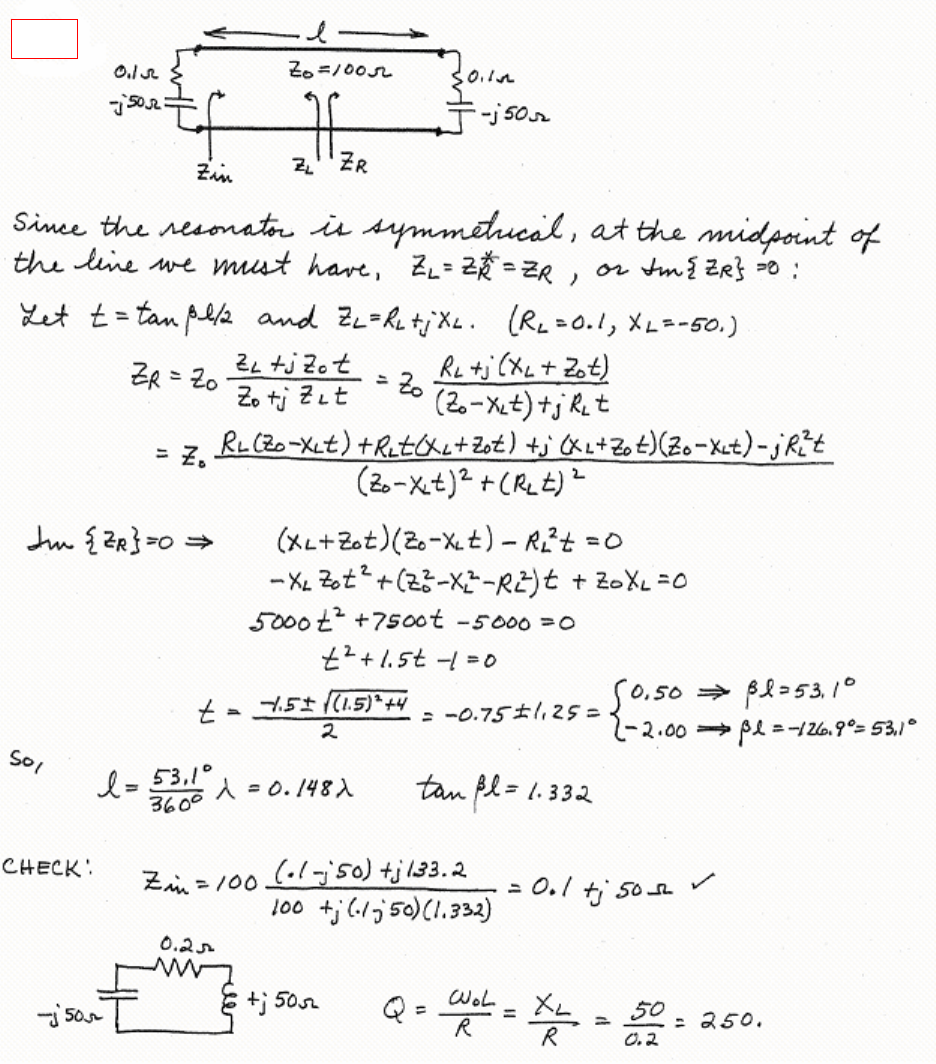 l
0.1Ω Z₀=100Ω 0.1Ω
-j50Ω -j50Ω
Zin Z_L Z_R
Since the resonator is symmetrical, at the midpoint of
the line we must have, Z_L = Z_R^* = Z_R, or Im{Z_R} = 0:
Let t = tan βl/2 and Z_L = R_L + jX_L. (R_L = 0.1, X_L = -50.)
Z_R = Z₀ (Z_L + jZ₀t)/(Z₀ + jZ_Lt) = Z₀ (R_L + j(X_L + Z₀t))/((Z₀ - X_Lt) + jR_Lt)
= Z₀ (R_L(Z₀ - X_Lt) + R_Lt(X_L + Z₀t) + j(X_L + Z₀t)(Z₀ - X_Lt) - jR_L²t)/((Z₀ - X_Lt)² + (R_Lt)²)
Im{Z_R} = 0 ⇒ (X_L + Z₀t)(Z₀ - X_Lt) - R_L²t = 0
-X_L Z₀t² + (Z₀² - X_L² - R_L²)t + Z₀X_L = 0
5000t² + 7500t - 5000 = 0
t² + 1.5t - 1 = 0
t = (-1.5 ± √((1.5)² + 4))/2 = -0.75 ± 1.25 = { 0.50 ⇒ βl = 53.1°
-2.00 ⇒ βl = -126.9° = 53.1°
So,
l = 53.1°/360° λ = 0.148λ tan βl = 1.332
CHECK: Zin = 100 ((.1 - j50) + j133.2)/(100 + j(.1 - j50)(1.332)) = 0.1 + j50Ω ✓
0.2Ω
-j50Ω +j50Ω Q = ω₀L/R = X_L/R = 50/0.2 = 250.